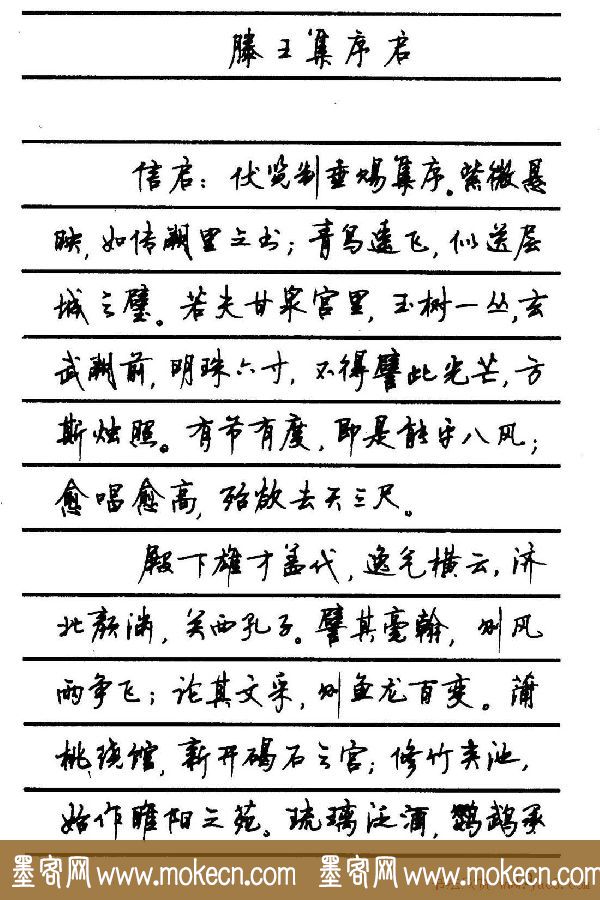 滕王集序启
信启：伏览制垂赐集序。紫微悬
映，如传阙里之书；青鸟遥飞，似送层
城之璧。若夫甘泉宫里，玉树一丛，玄
武阙前，明珠六寸，不得譬此光芒，方
斯烛照。有节有度，即是能平八风；
愈唱愈高，殆欲去天三尺。
殿下雄才盖代，逸气横云，济
北颜渊，关西孔子。譬其毫翰，则风
雨争飞；论其文采，则鱼龙百变。蒲
桃绕馆，新开碣石之宫；修竹夹池，
始作睢阳之苑。琉璃泛酒，鹦鹉承
墨客网 www.mokecn.com 墨客网 www.mokecn.com